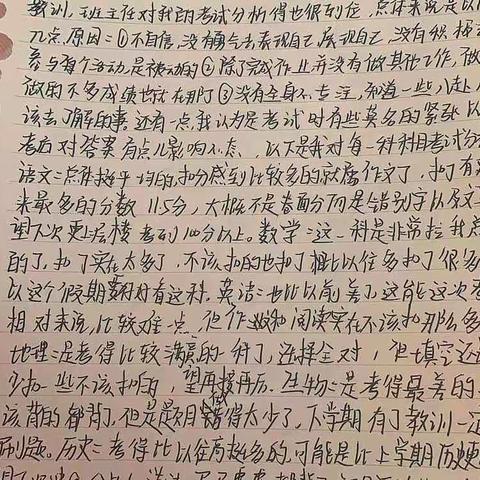 教训,班主任对我的考试分析得也很到位,总体来说是以
几点原因:①不自信,没有勇气去表现自己展现自己,没有积极
参与每个活动,是被动的②除了完成作业并没有做其他工作,做
做的不多成绩也就在那了③没有全身心专注,知道一些八卦
该去了解的事还有一点,我认为是考试时有些莫名的紧张以
考后对答案有点儿影响心态。以下是我对每一科科目考试分
语文:总体趋于均的扣分感到比较多的就属作文了,扣了有
来最多的分数11.5分,大概不是卷面分而是错别字以及文
望下次更上层楼考到100分以上。数学:这一科是非常拉我总
的了,扣了实在太多了,不该扣的也扣了相比以往多扣了很多
以这个假期要对有这科.英语:也比以前差了,这能这次考
相对来说,比较难一点,但作文和阅读实在不该扣那么多
地理:是考得比较满意的一科了,选择全对,但填空还
少扣一些不该扣的,望再接再厉。生物:是考得最差的
该背的都背了,但是题目做错得太少了,下学期有了教训一定
刷题。历史:考得比以往高挺多的,可能是比上学期历史更